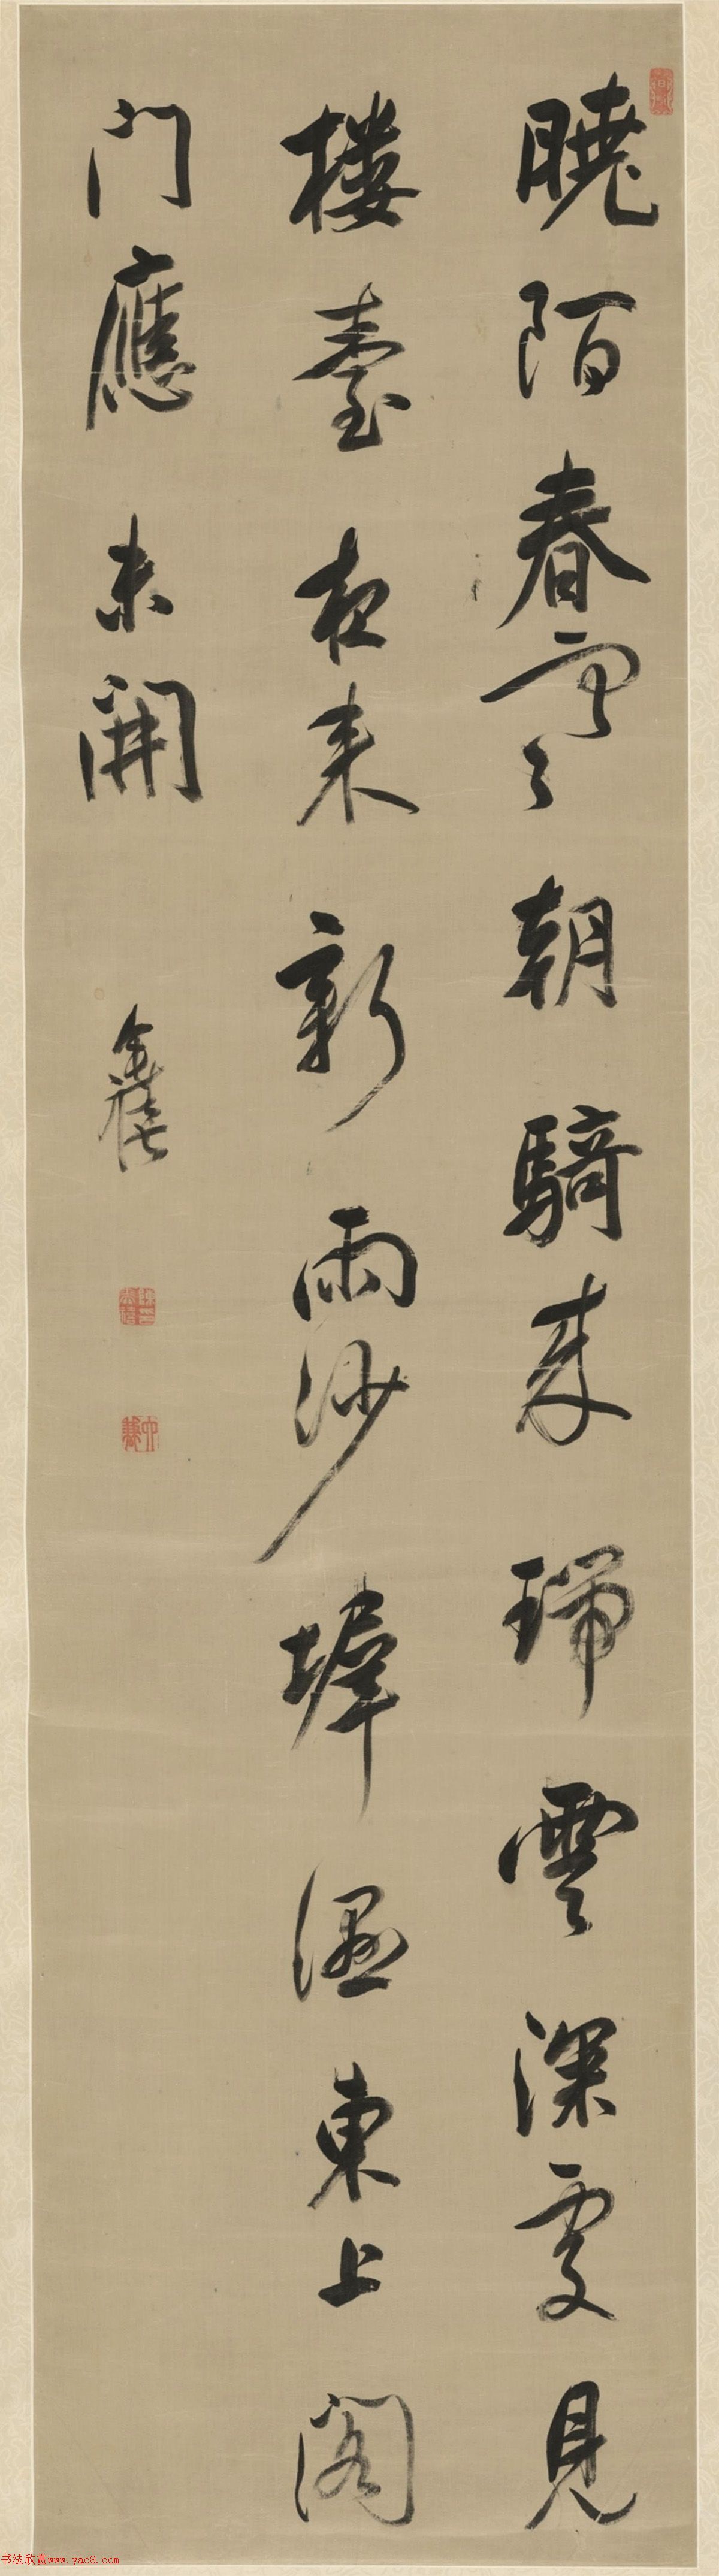 曉陌春寒朝騎來瑞雲深處見
樓臺夜來新雨沙堤濕東上閣
門應未開
奕禧
书法欣赏www.yac8.com